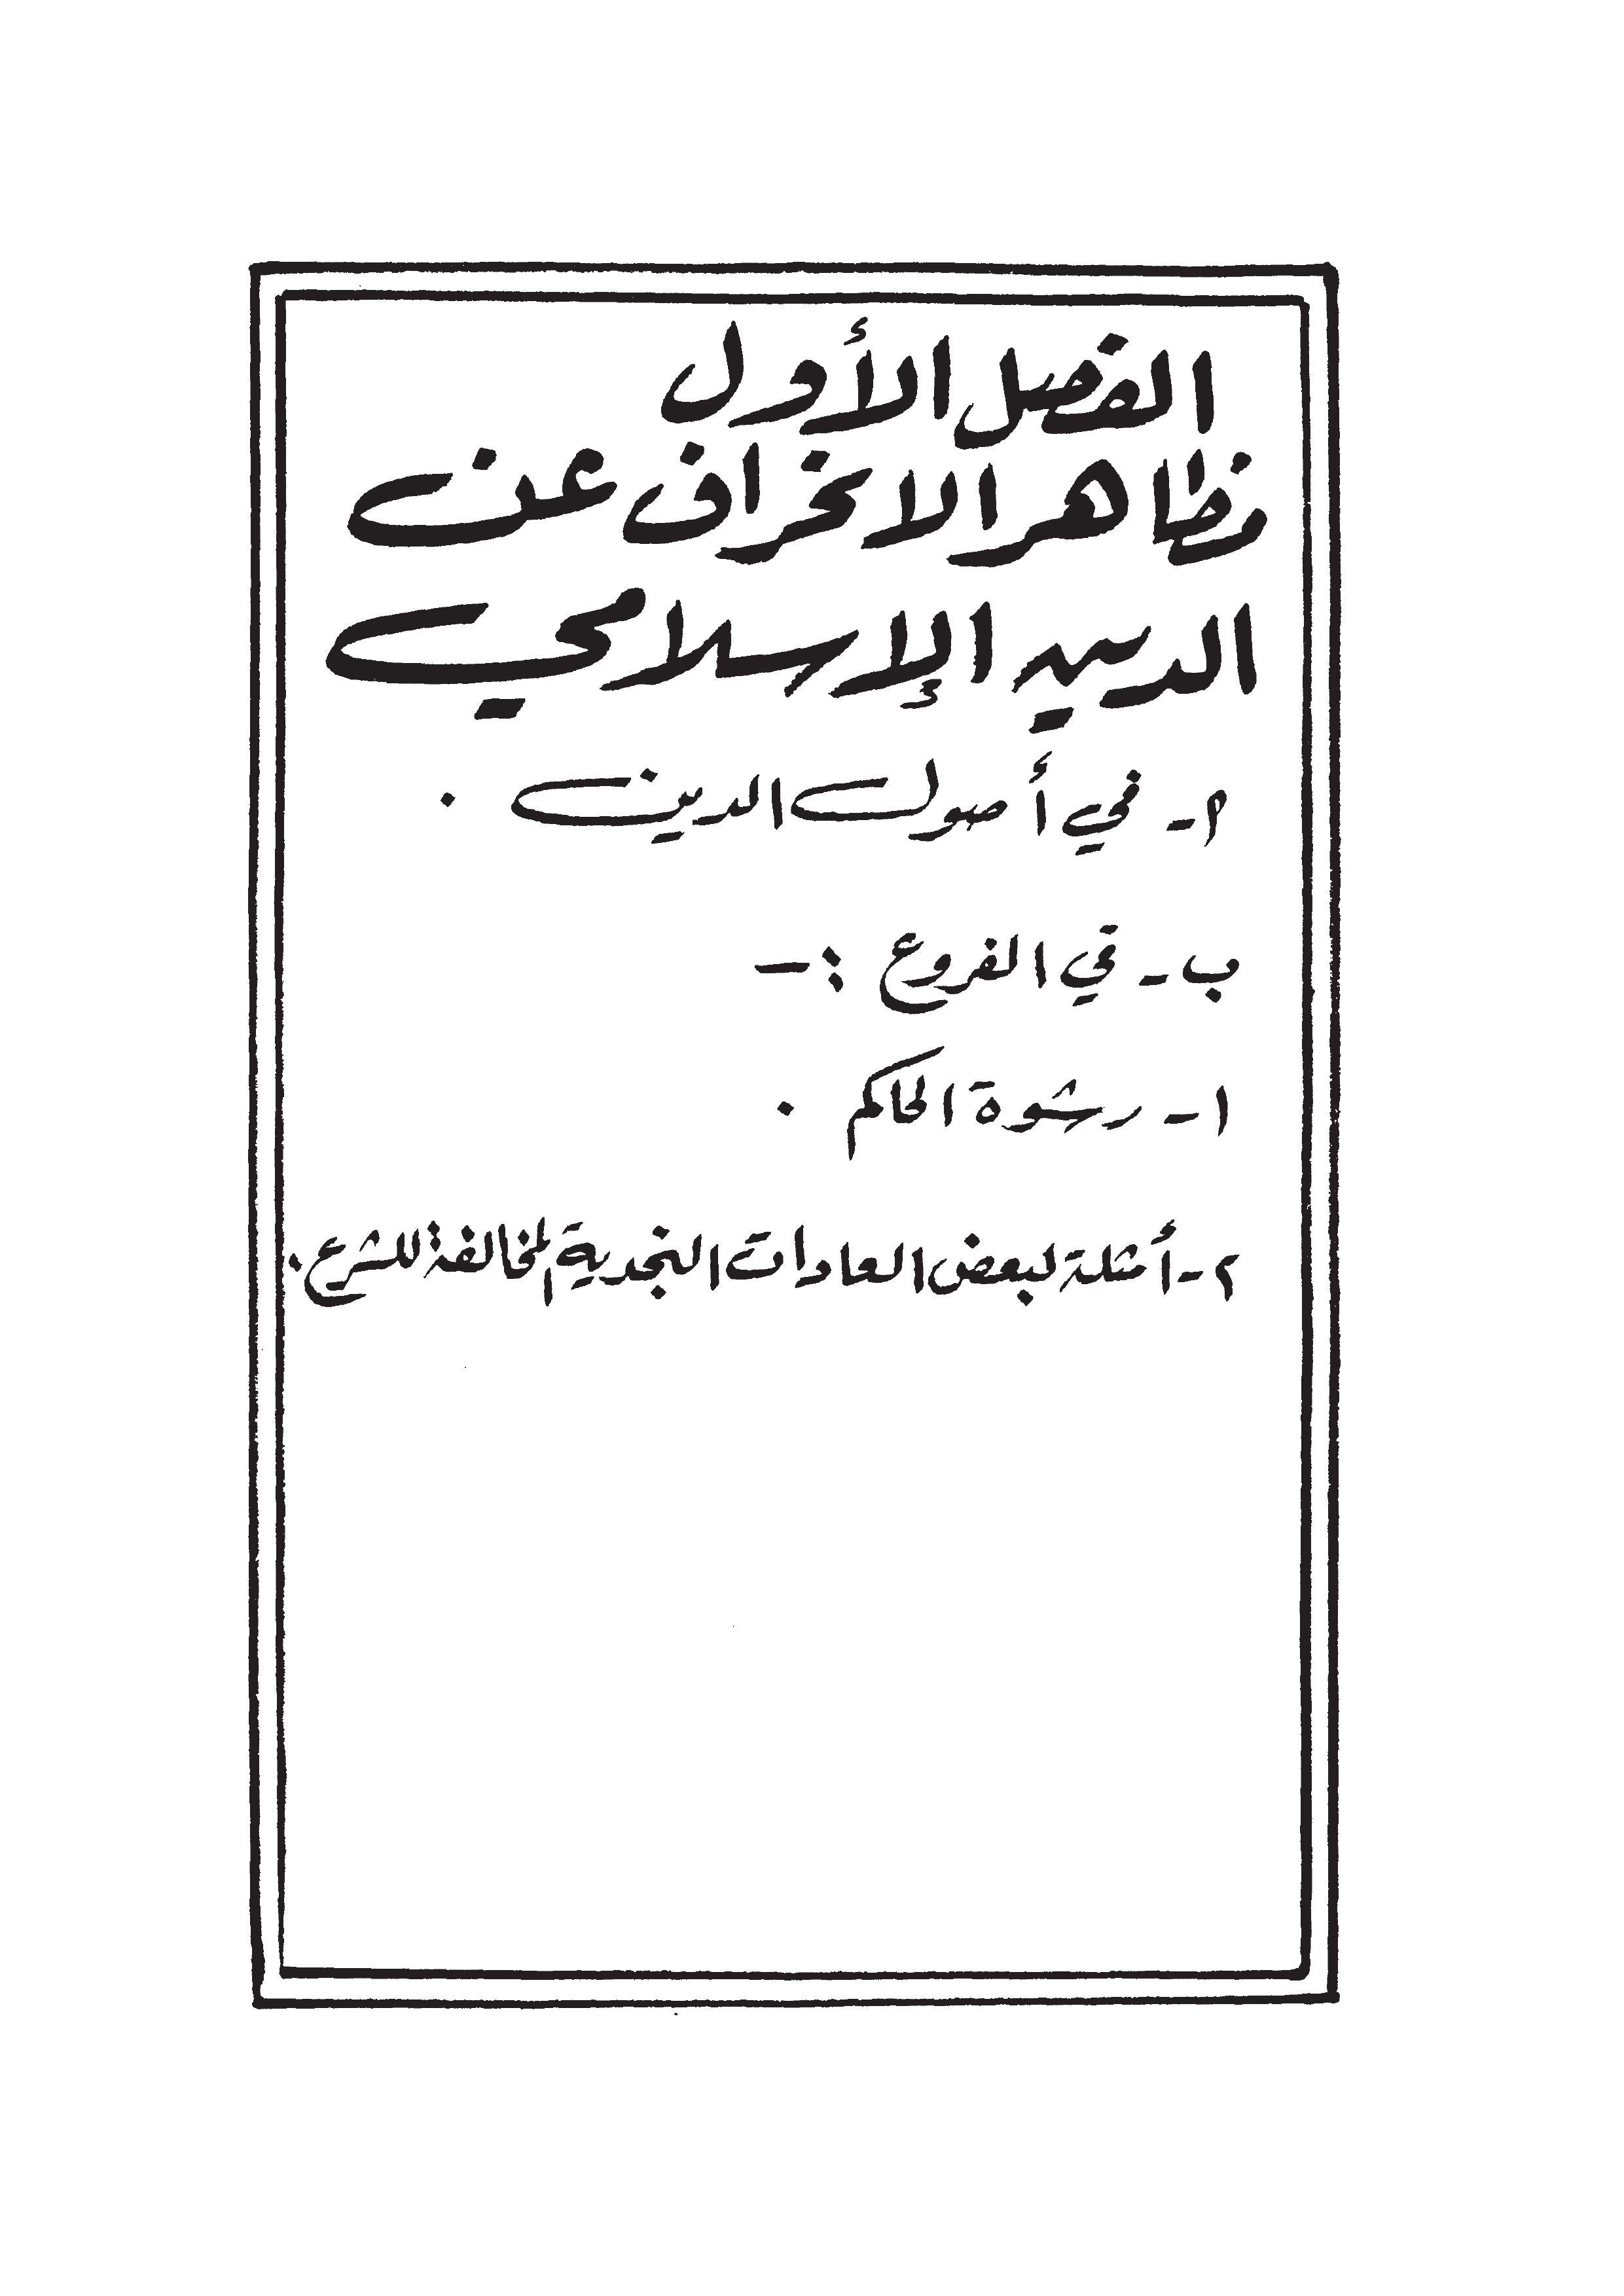 الفصل الأول
مظاهر الانحراف عن
الدين الإسلامي
٢ - في أصول الدين .
ب - في الفروع :-
١ - رشوة الحاكم .
٢ - أمثلة لبعض العادات النجدية المخالفة للشرع .